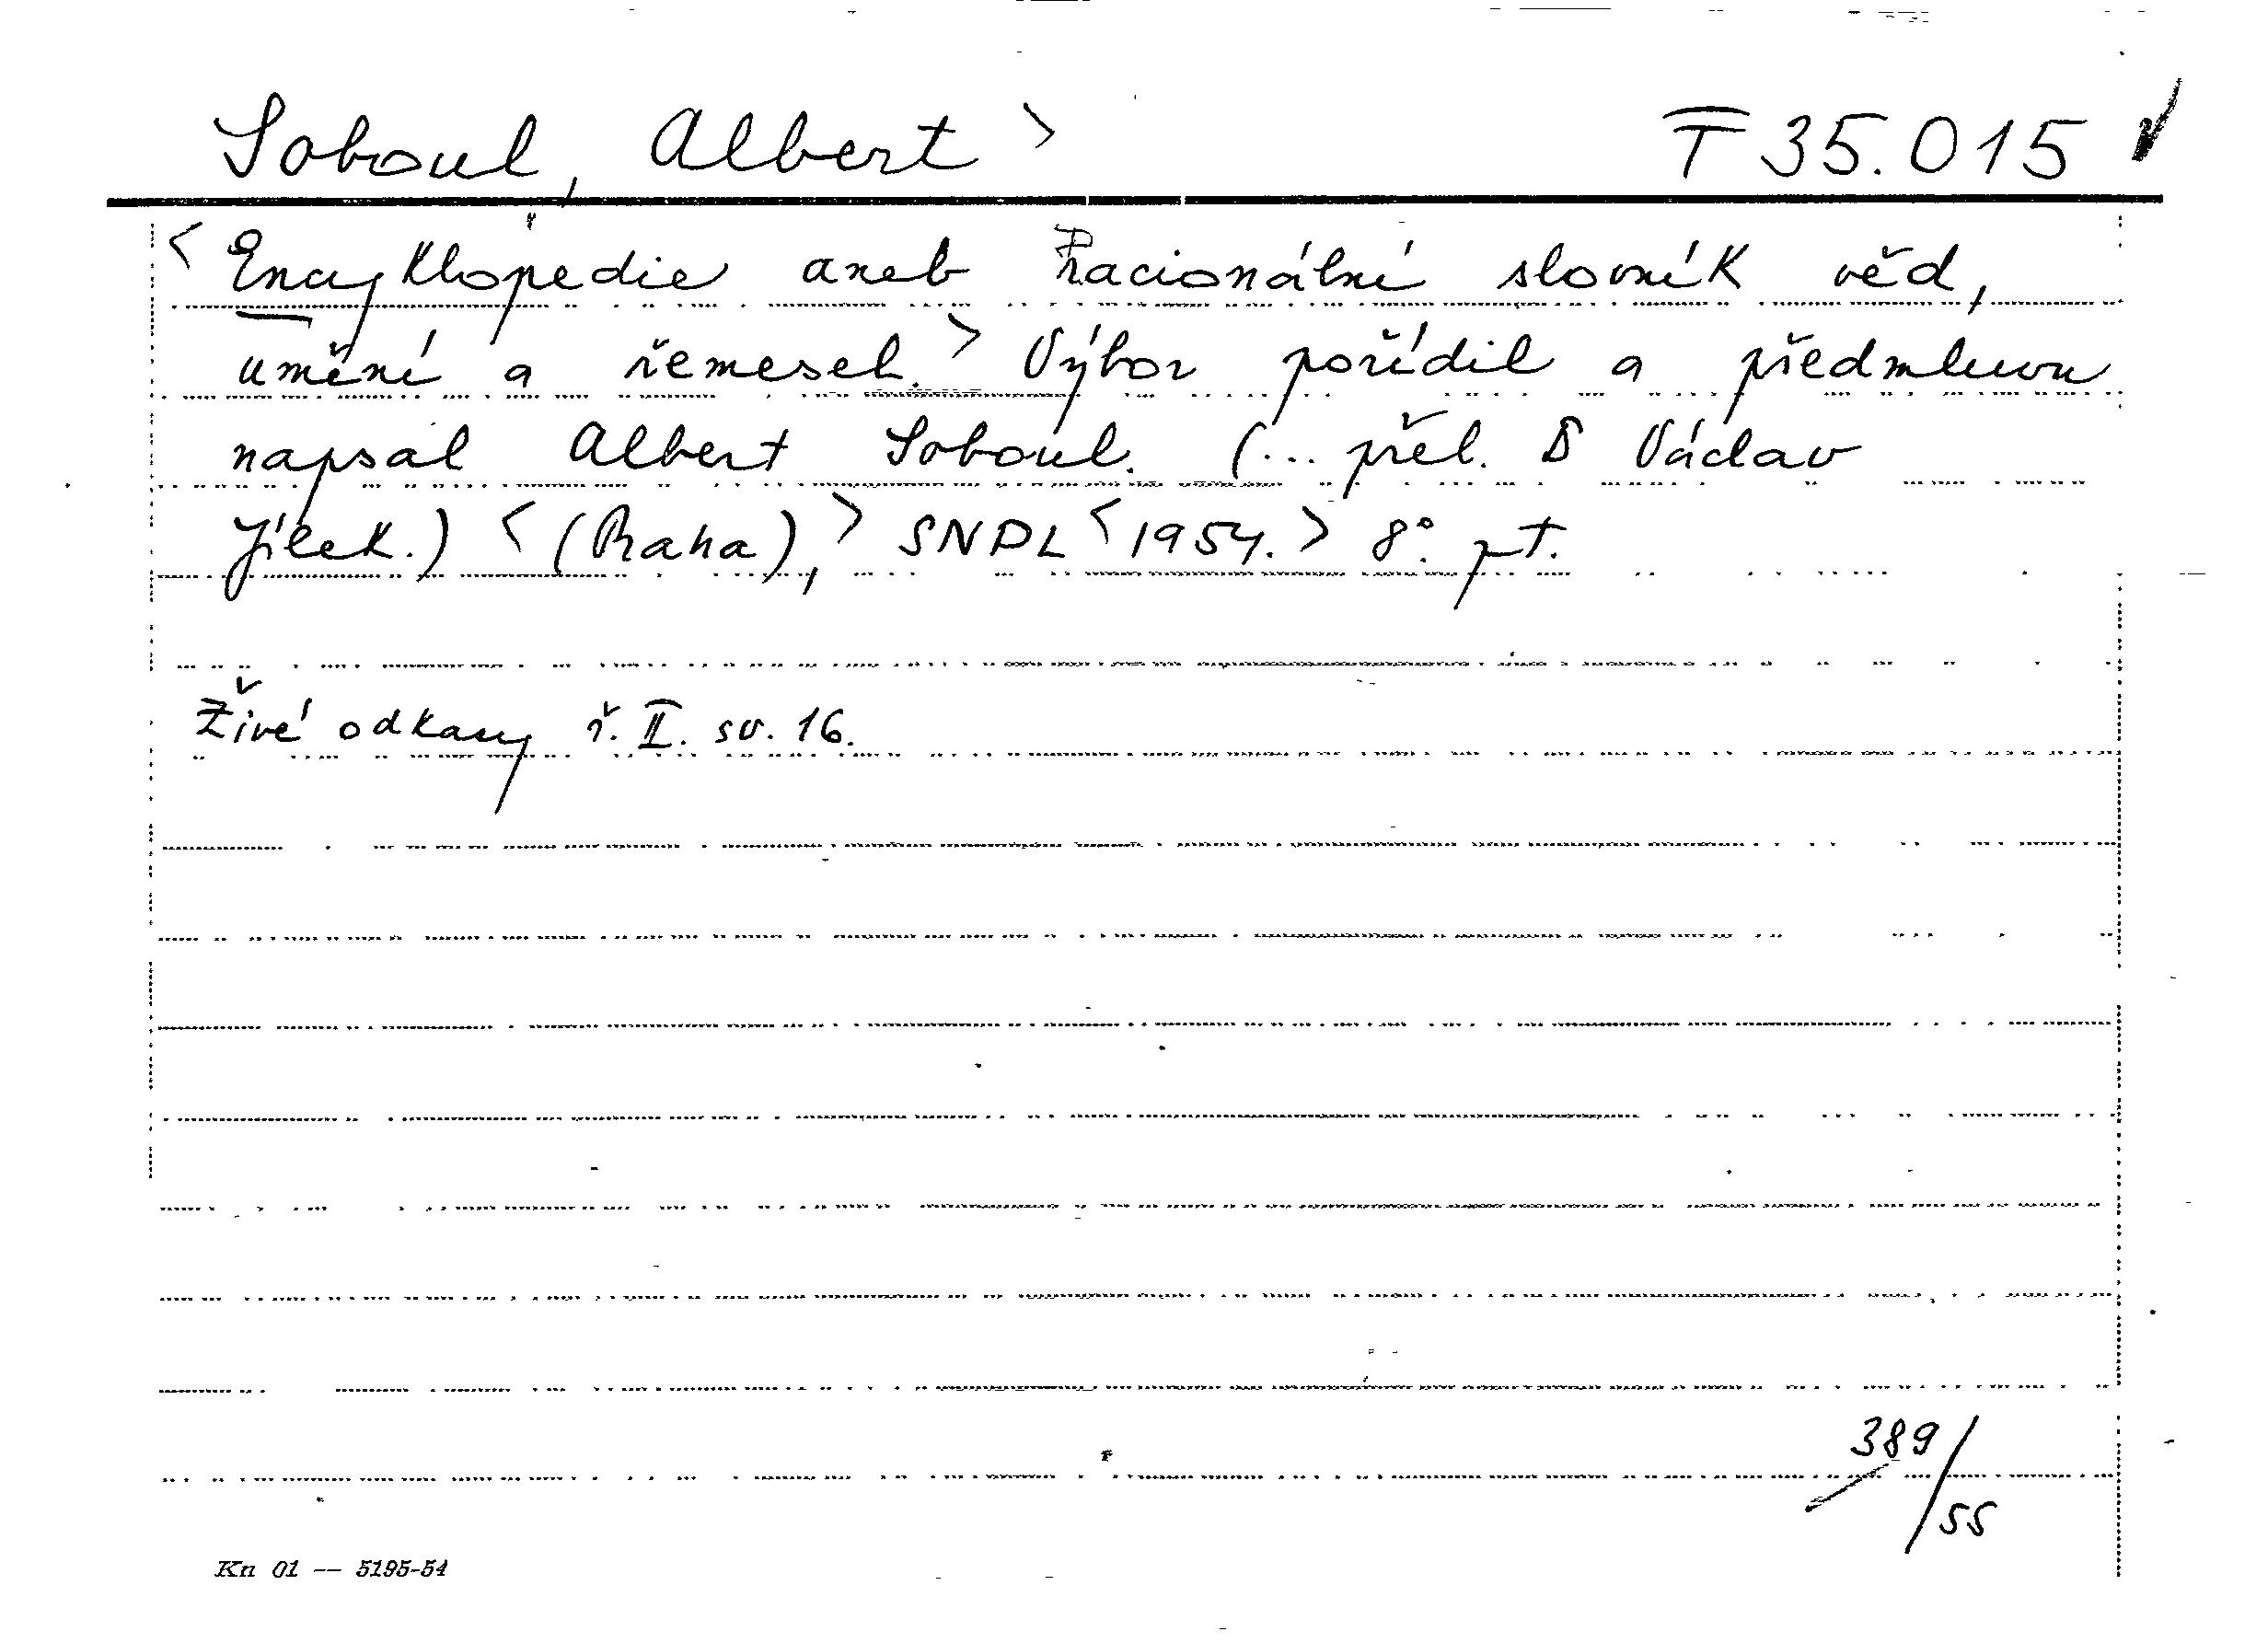 Soboul, Albert > T 35.015
< Encyklopedie aneb Racionální slovník věd,
umění a řemesel. > Výbor pořídil a předmluvu
napsal Albert Soboul. (... přel. Václav
Jílek.) < (Praha), > SNPL < 1954. > 8° pt.
Živé odkazy ř. II. sv. 16.
389/
55
Kn 01 — 5195-54